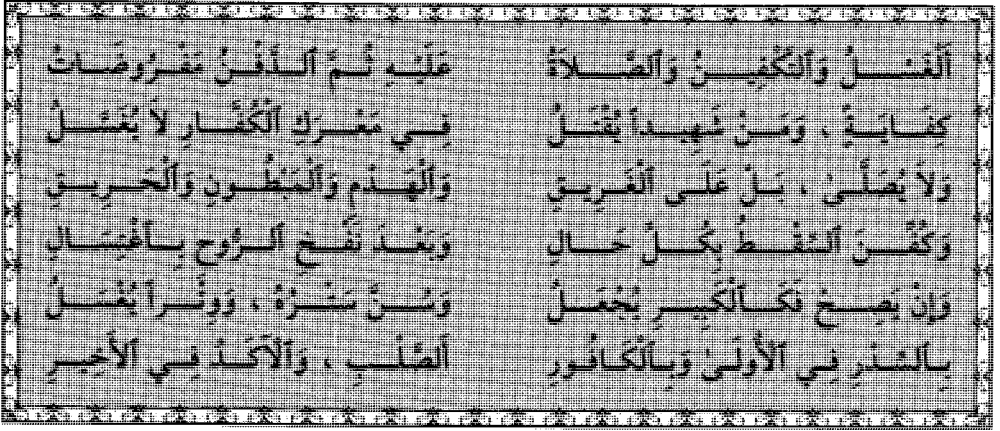 اَلْغَسْلُ وَالتَّكْفِينُ وَالصَّلاَةُ عَلَيْهِ ثُمَّ الدَّفْنُ مَفْرُوضَاتُ
كِفَايَةً ، وَمَنْ شَهِيداً يُقْتَلُ فِي مَعْرَكِ الْكُفَّارِ لاَ يُغَسَّلُ
وَلاَ يُصَلَّىٰ ، بَلْ عَلَى الْغَرِيقِ وَالْهَدْمِ وَالْمَبْطُونِ وَالْحَرِيقِ
وَكُفِّنَ السِّقْطُ بِكُلِّ حَالِ وَبَعْدَ نَفْخِ الرُّوحِ بِاغْتِسَالِ
وَإِنْ يَصِحْ فَكَالْكَبِيرِ يُجْعَلُ وَسُنَّ سَتْرُهُ ، وَوِتْراً يُغْسَلُ
بِالسِّدْرِ فِي الأُولَىٰ وَبِالْكَافُورِ اَلصُّلْبِ ، وَالآكَدُ فِي الأَخِيرِ